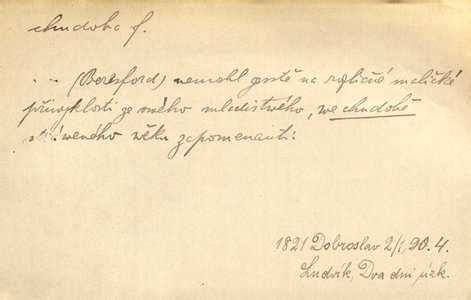 chudoba f.
.. (Beresford) nemohl gestě na rozličné maličké
přívyklosti ze swého mladistwého, we chudobě
stráweného wěku zapomenauti:
1821 Dobroslav 2/1, 90. 4.
Ludvík, Dva dni úzk.